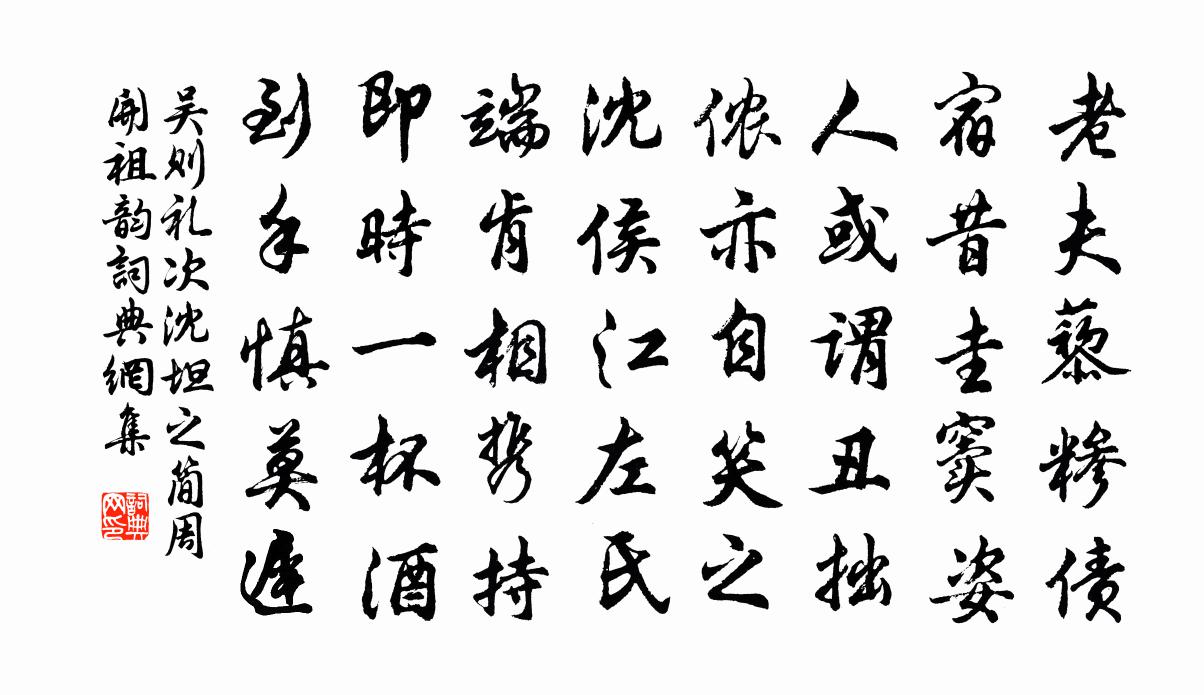 老夫藜糝债
宿昔圭窦姿
人或谓丑拙
侬亦自笑之
沈侯江左氏
端肯相携持
即時一杯酒
到手慎莫遲
吴则礼次沈坦之简周
開祖韵詞典網集
詞典
网印